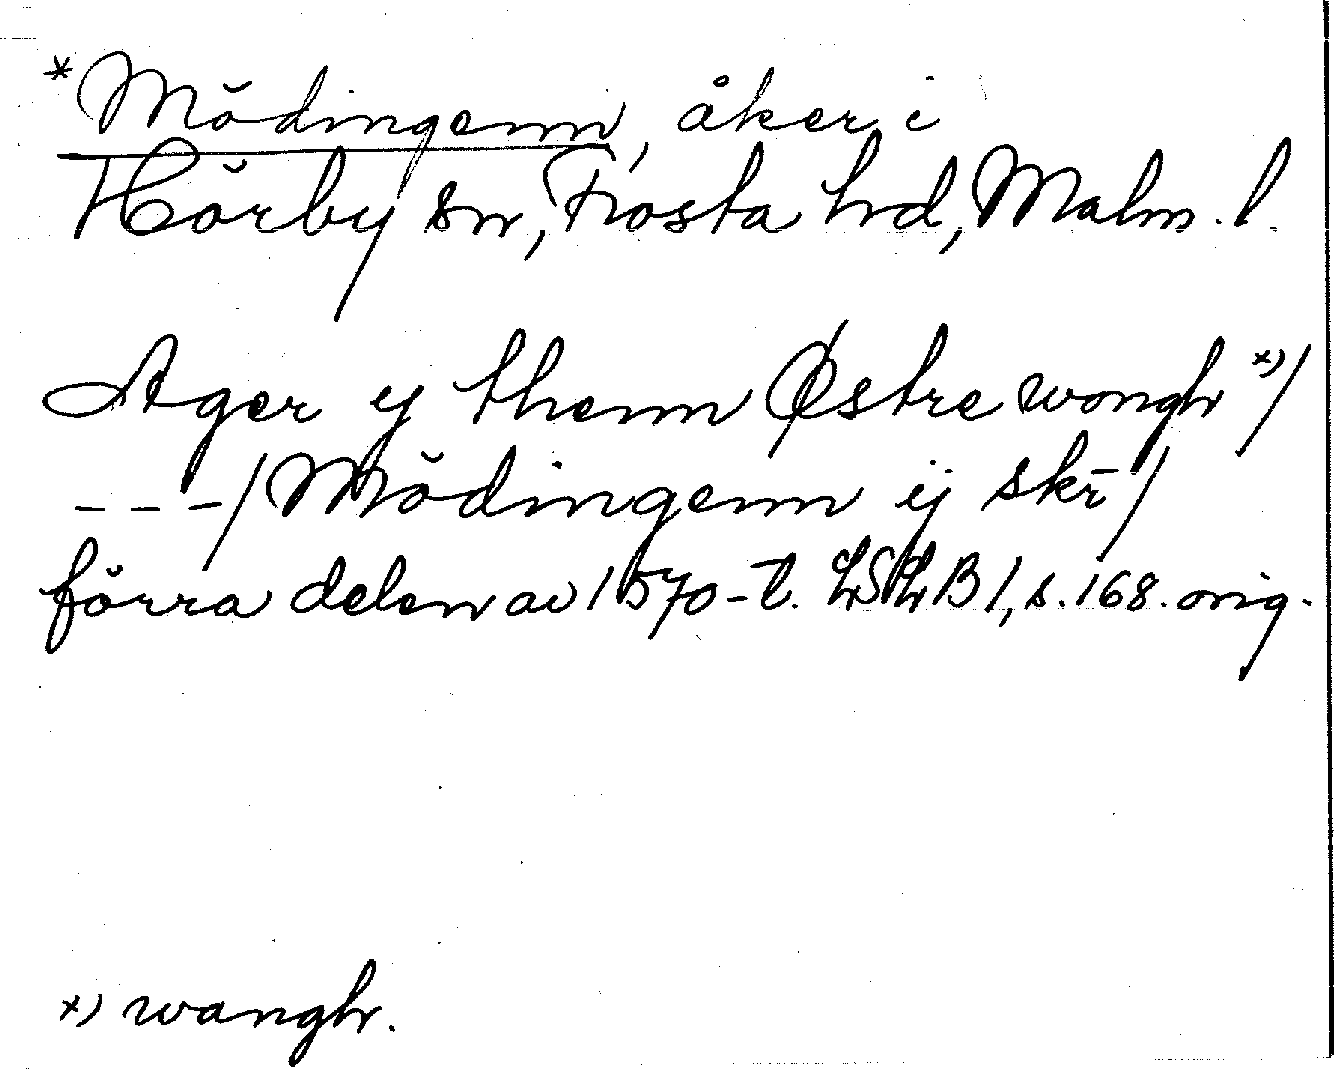 *Mödingenn, åker i
Hörby sn, Frosta hd, Malm. l.
Ager y thenn Østre wongh *)/
---/ Mödingenn ij skr̄ /
förra delen av 1570-t. LSLB 1, s. 168. orig.
*) wangh.